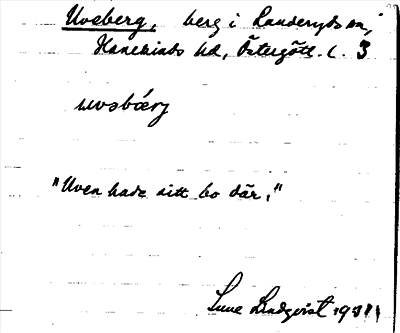 Uvsberg, berg i Landeryds sn,
Hanekinds hd, Östergötl. l. 3
uvsbærj
"Uven hade sitt bo där."
Sune Lindqvist 19